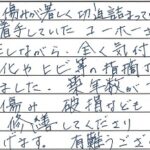 傷みが著しく切迫詰まって
着手していたユーホーさ
としながら、全く気付
化やヒビ等の指摘
ました。築年数が
傷み 破損なども
修繕してくださり
げます。 有難うござ